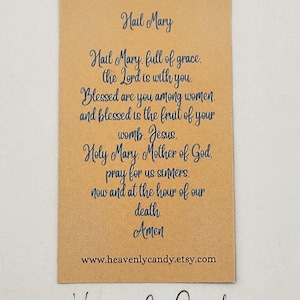 Hail Mary
Hail Mary, full of grace,
the Lord is with you.
Blessed are you among women,
and blessed is the fruit of your
womb, Jesus.
Holy Mary, Mother of God,
pray for us sinners,
now and at the hour of our
death.
Amen
www.heavenlycandy.etsy.com